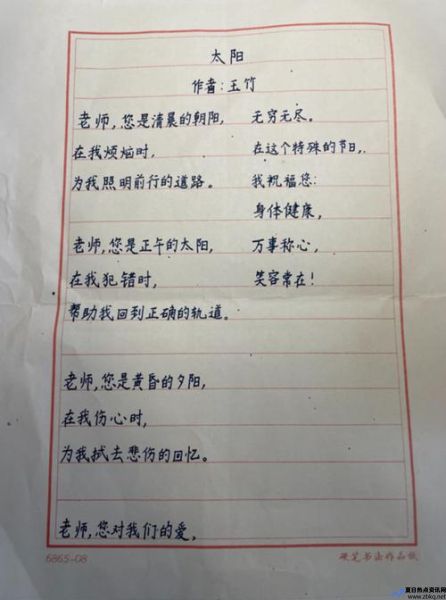 太阳
作者:王竹
老师,您是清晨的朝阳,
在我烦恼时,
为我照明前行的道路。
老师,您是正午的太阳,
在我犯错时,
帮助我回到正确的轨道。
老师,您是黄昏的夕阳,
在我伤心时,
为我拭去悲伤的回忆。
老师,您对我们的爱,
无穷无尽。
在这个特殊的节日,
我祝福您:
身体健康,
万事称心,
笑容常在!
6865-08
硬笔书法作品纸
夏日热点资讯网
www.zbkq.net